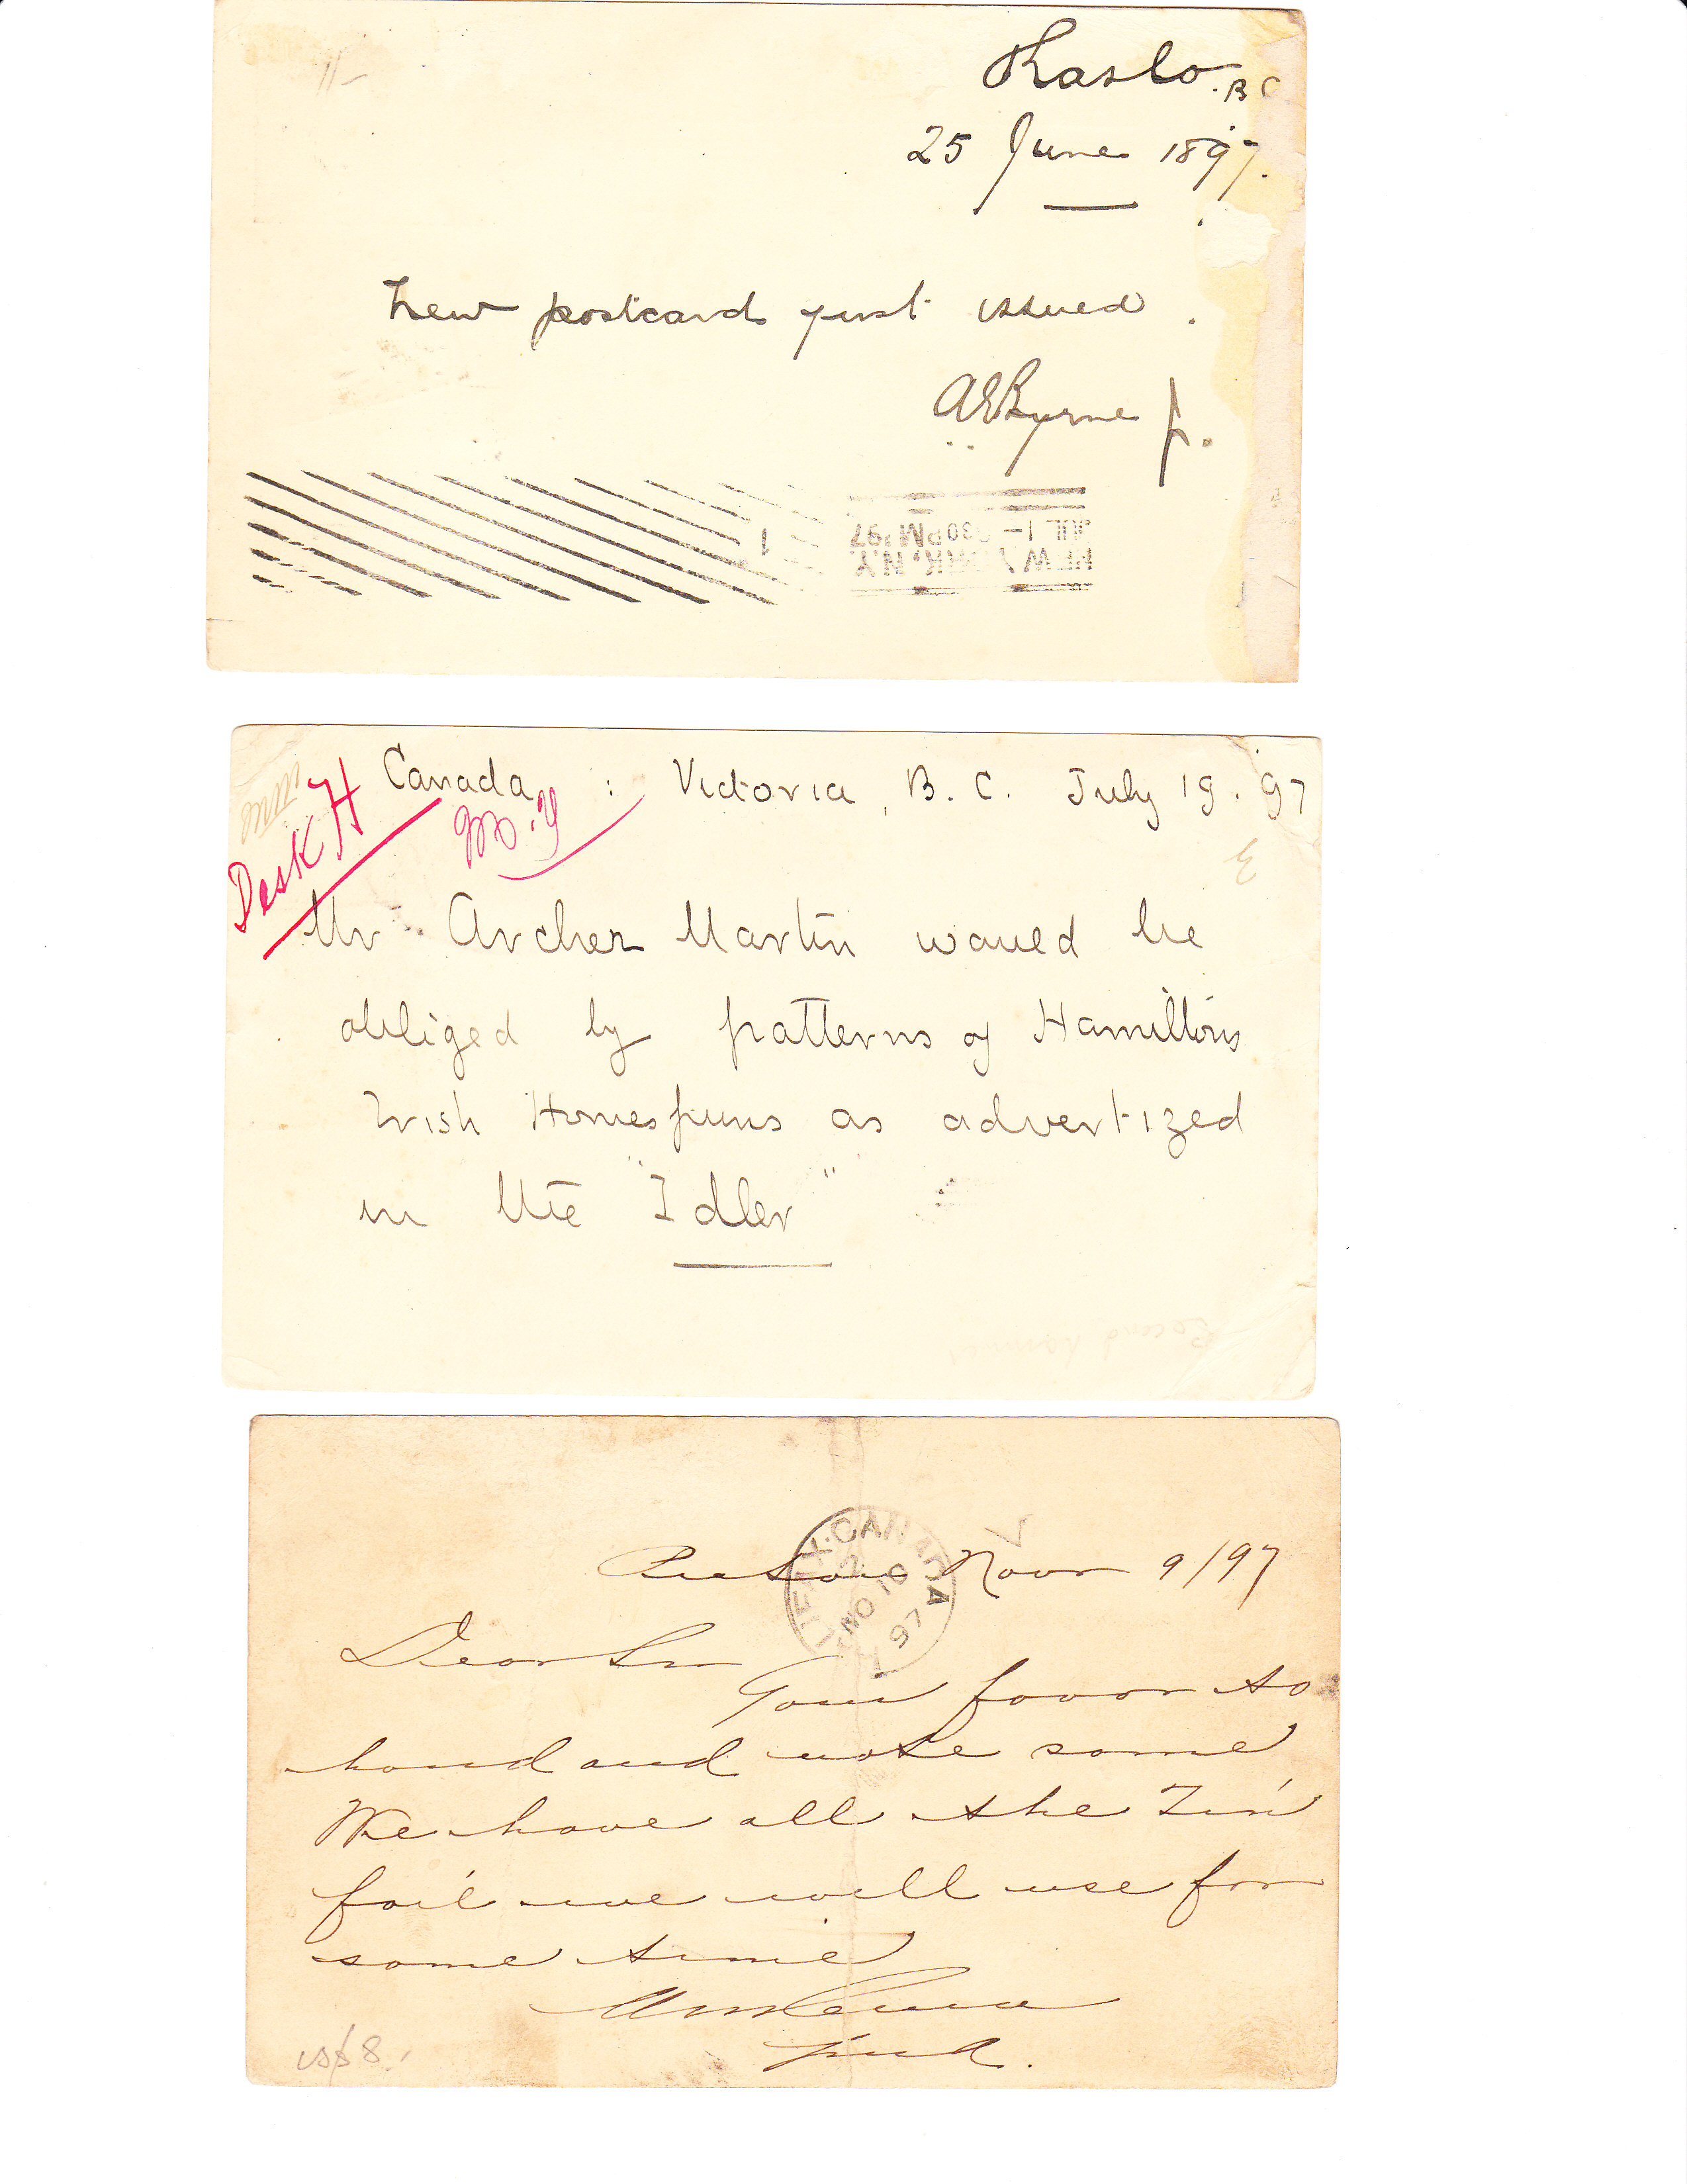 Kaslo. B C
25 June 1897.
New postcard just issued.
A E Byrne Jr.
NEW YORK, N.Y.
JUL 1- 30PM 97
1
Canada : Victoria, B. C. July 19. 97
Desk H
M.Y
Mr Archer Martin would be
obliged by patterns of Hamilton's
Irish Homespuns as advertized
in the "Idler"
HALIFAX · CANADA
2
NO 10
97
Nov 9/97
Dear Sir
Your favor to
hand and note same
We have all the Tin
foil we will use for
some time
US$8.